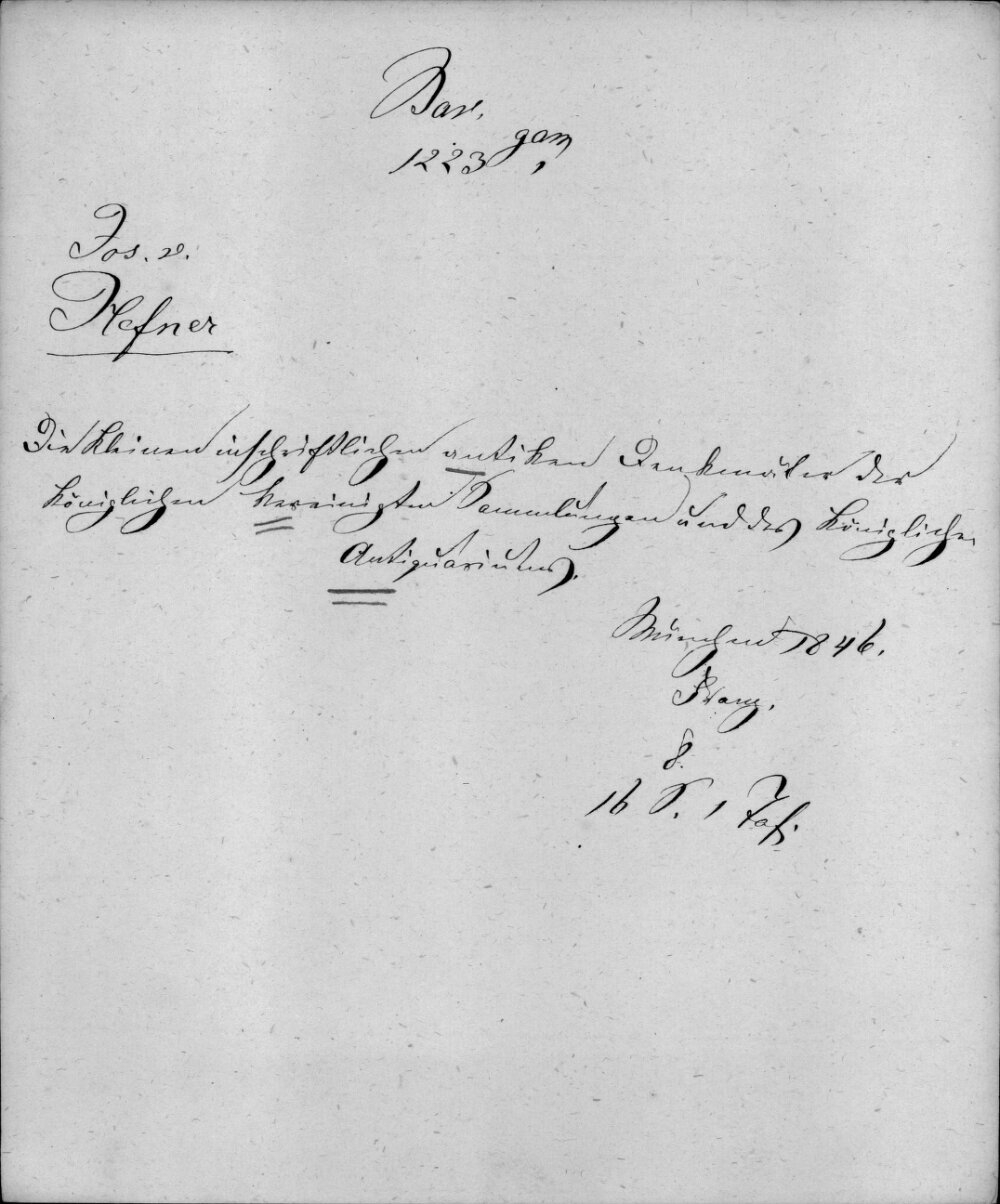 Bav.
1223 gam,
Jos. v.
Hefner
Die kleinen inschriftlichen antiken Denkmäler der
königlichen vereinigten Sammlungen und des königlichen
Antiquariums.
München 1846.
Franz.
8.
16 S. 1 Taf.